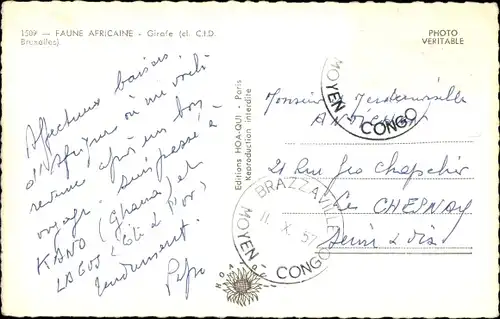 1509 — FAUNE AFRICAINE - Girafe (cl. C.I.D.
Bruxelles).
PHOTO
VERITABLE
Affectueux baisers
d'Afrique où me voilà
revenu après un bon
voyage. Suis passé à
KANO (Ghana) et
LAGOS (Côte d'Ivor)
Tendrement.
Editions HOA-QUI - Paris
Reproduction interdite
MOYEN CONGO
Monsieur
21 Rue Geo Chapelier
Le CHESNAY
Seine & Oise
BRAZZAVILLE
11 X 57
MOYEN CONGO
HOA QUI